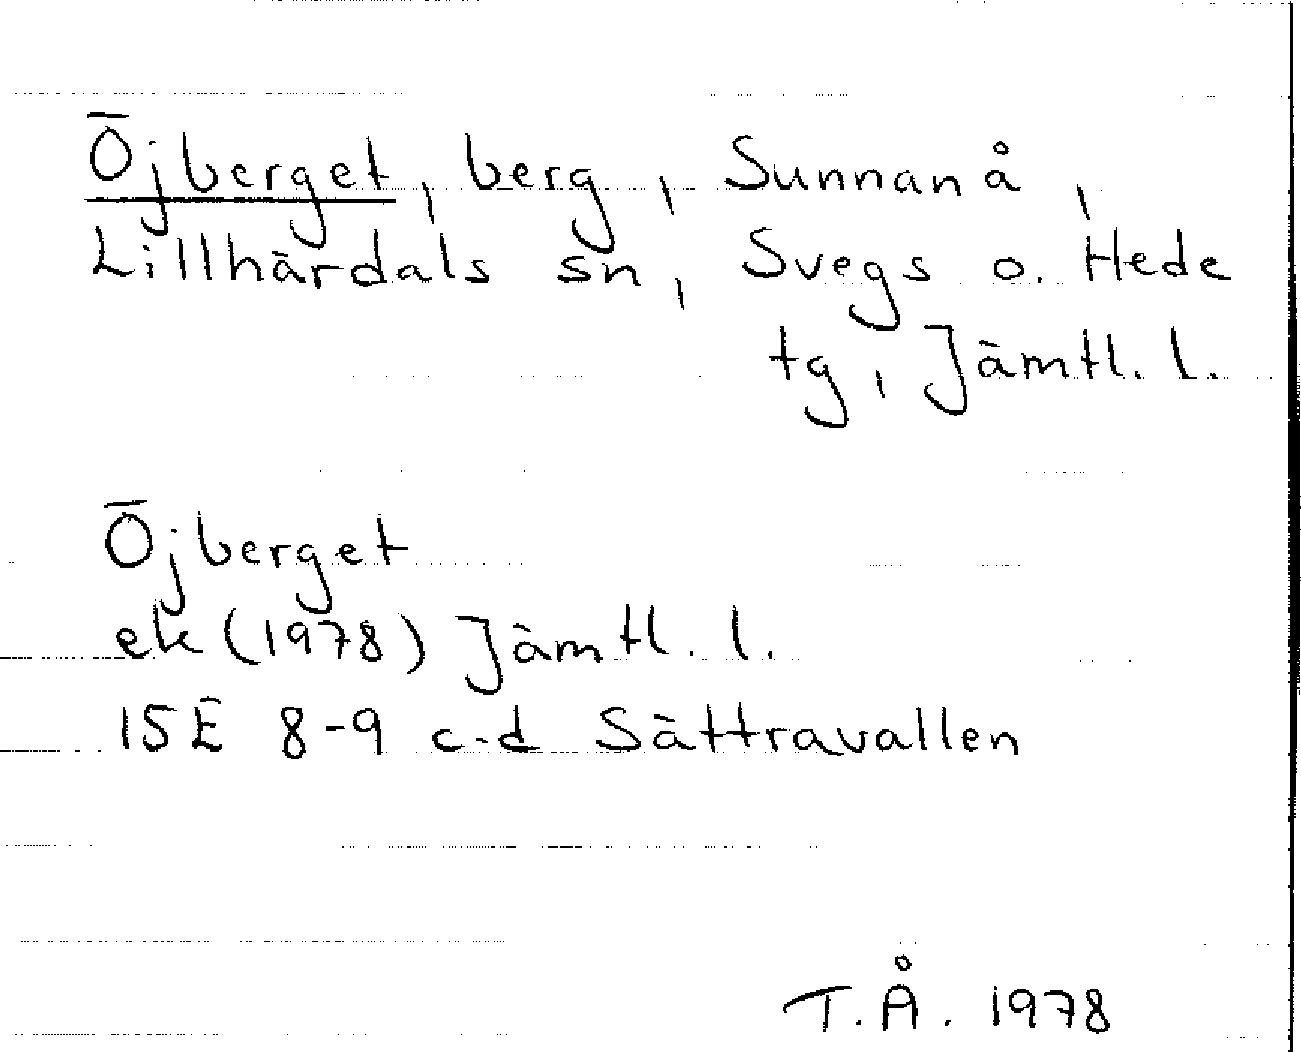 Öjberget, berg, Sunnanå,
Lillhärdals sn, Svegs o. Hede
tg, Jämtl. l.
Öjberget
ek (1978) Jämtl. l.
15E 8-9 c-d Sättravallen
T.Å. 1978